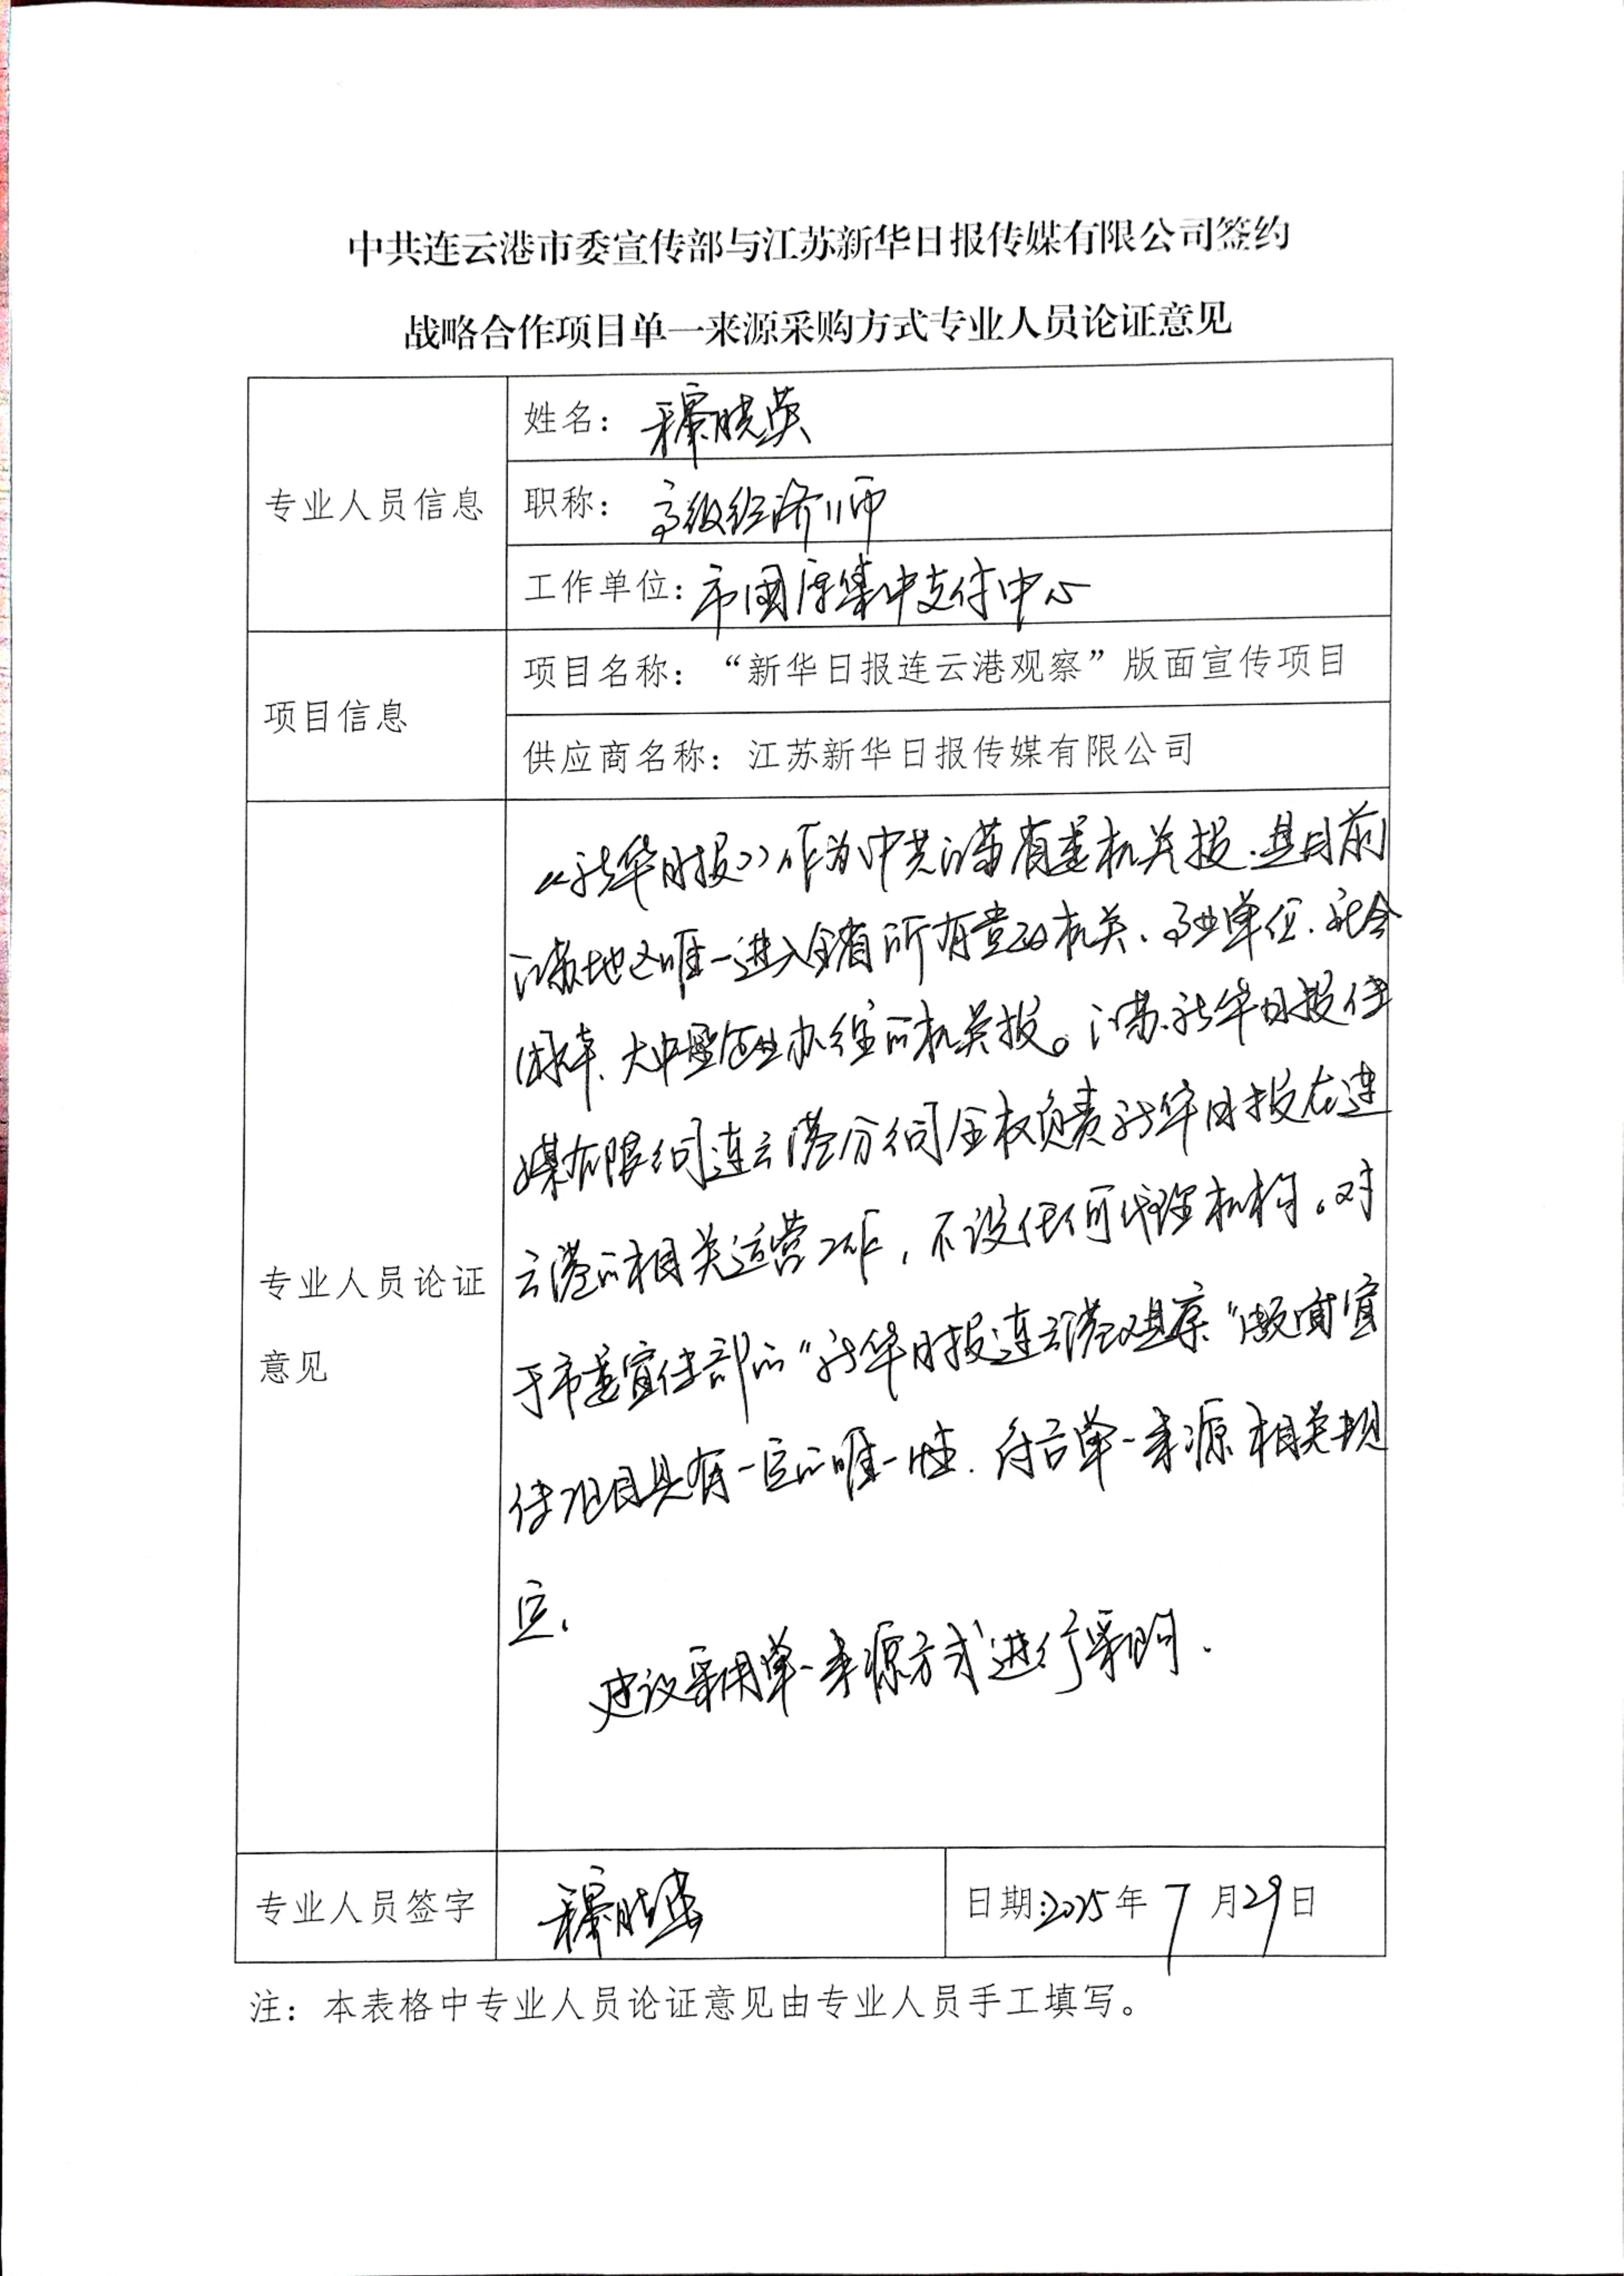 中共连云港市委宣传部与江苏新华日报传媒有限公司签约
战略合作项目单一来源采购方式专业人员论证意见
专业人员信息
姓名：晓英
职称：高级经济师
工作单位：市国库集中支付中心
项目信息
项目名称：“新华日报连云港观察”版面宣传项目
供应商名称：江苏新华日报传媒有限公司
专业人员论证
意见
《新华日报》作为中共江苏省委机关报，是目前
江苏地区唯一进入全省所有党政机关、事业单位、社会
团体、大中型企业办公室的机关报。江苏新华日报传
媒有限公司连云港分公司全权负责新华日报在连
云港的相关运营工作，不设任何代理机构。对
于市委宣传部的“新华日报连云港观察”版面宣
传项目具有一定的唯一性，符合单一来源相关规
定。
建议采用单一来源方式进行采购。
专业人员签字
晓英
日期：2025年7月29日
注：本表格中专业人员论证意见由专业人员手工填写。